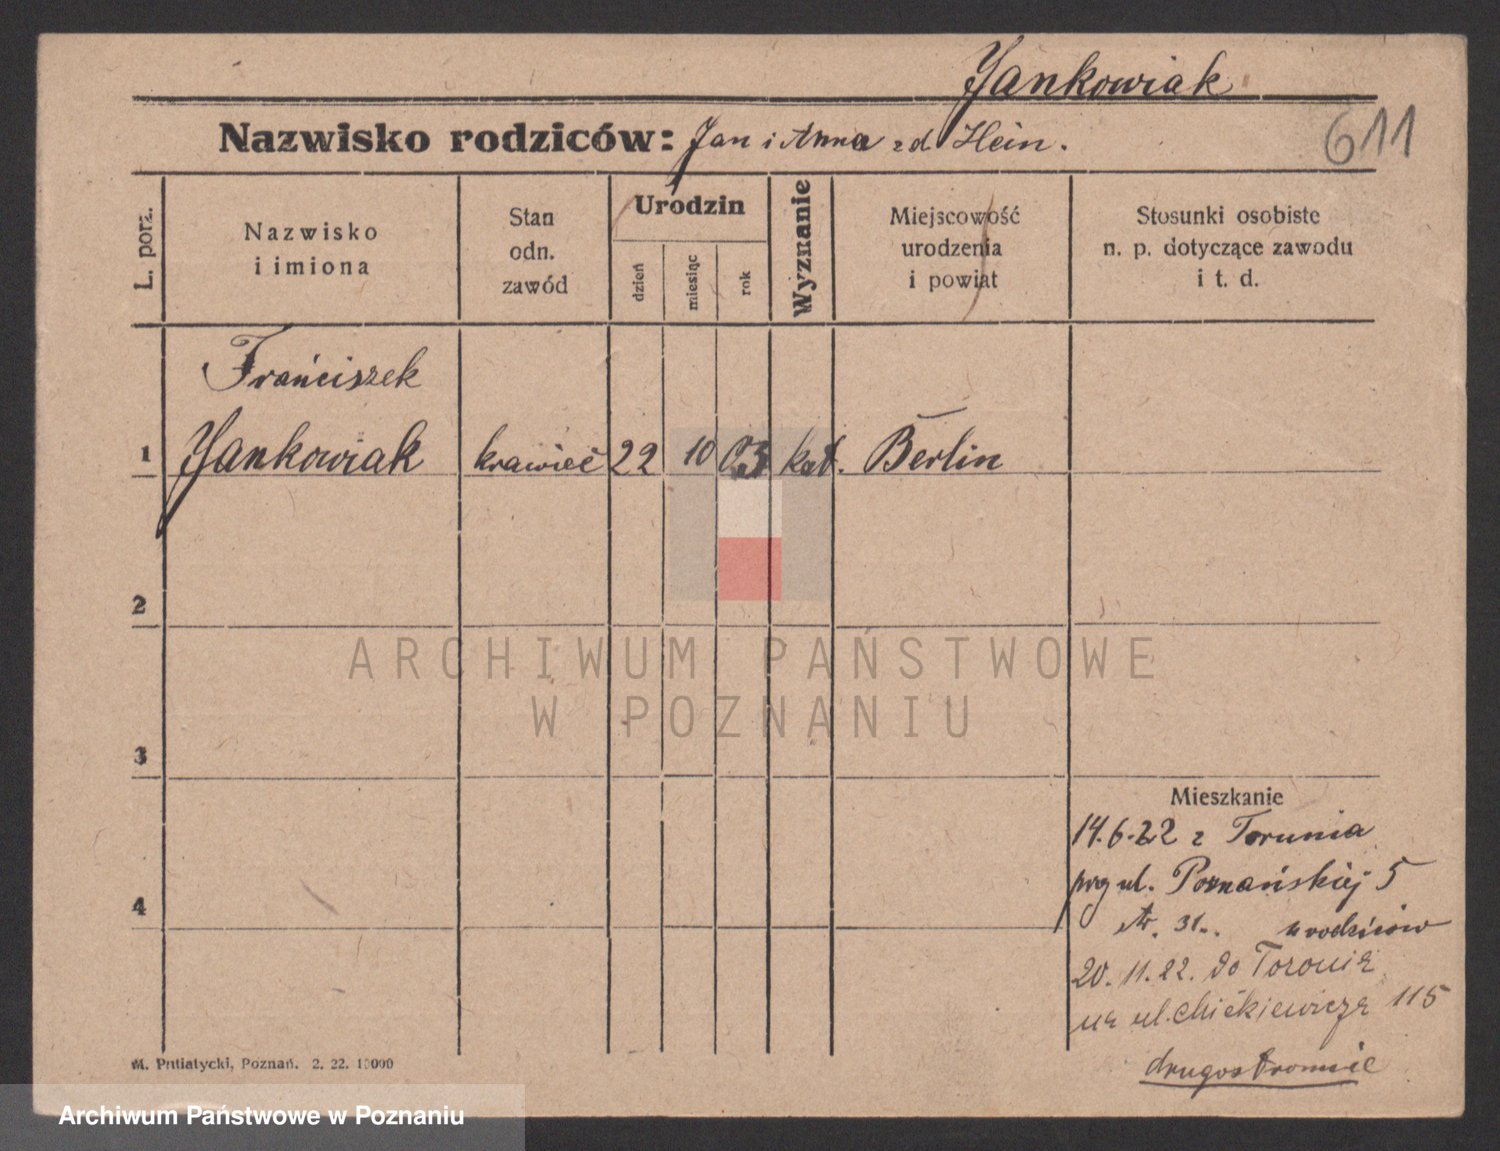 Jankowiak
Nazwisko rodziców: Jan i Anna z d. Hein.
611
L. porz.
Nazwisko
i imiona
Stan
odn.
zawód
Urodzin
dzień
miesiąc
rok
Wyznanie
Miejscowość
urodzenia
i powiat
Stosunki osobiste
n. p. dotyczące zawodu
i t. d.
Franciszek
1 Jankowiak krawiec 22 10 03 kat. Berlin
2
3
4
Mieszkanie
14.6.22 z Torunia
prz ul. Poznańskiej 5
31. u rodziców
20.11.22. do Torunia
na ul. Mickiewicza 115
drugostronnie
M. Putiatycki, Poznań. 2. 22. 10000
ARCHIWUM PAŃSTWOWE
W POZNANIU
Archiwum Państwowe w Poznaniu